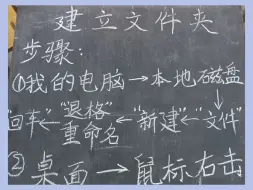 建立文件夹
步骤：
①我的电脑→本地磁盘
↓
"回车"←"退格"重命名←"新建"←"文件"
②桌面→鼠标右击